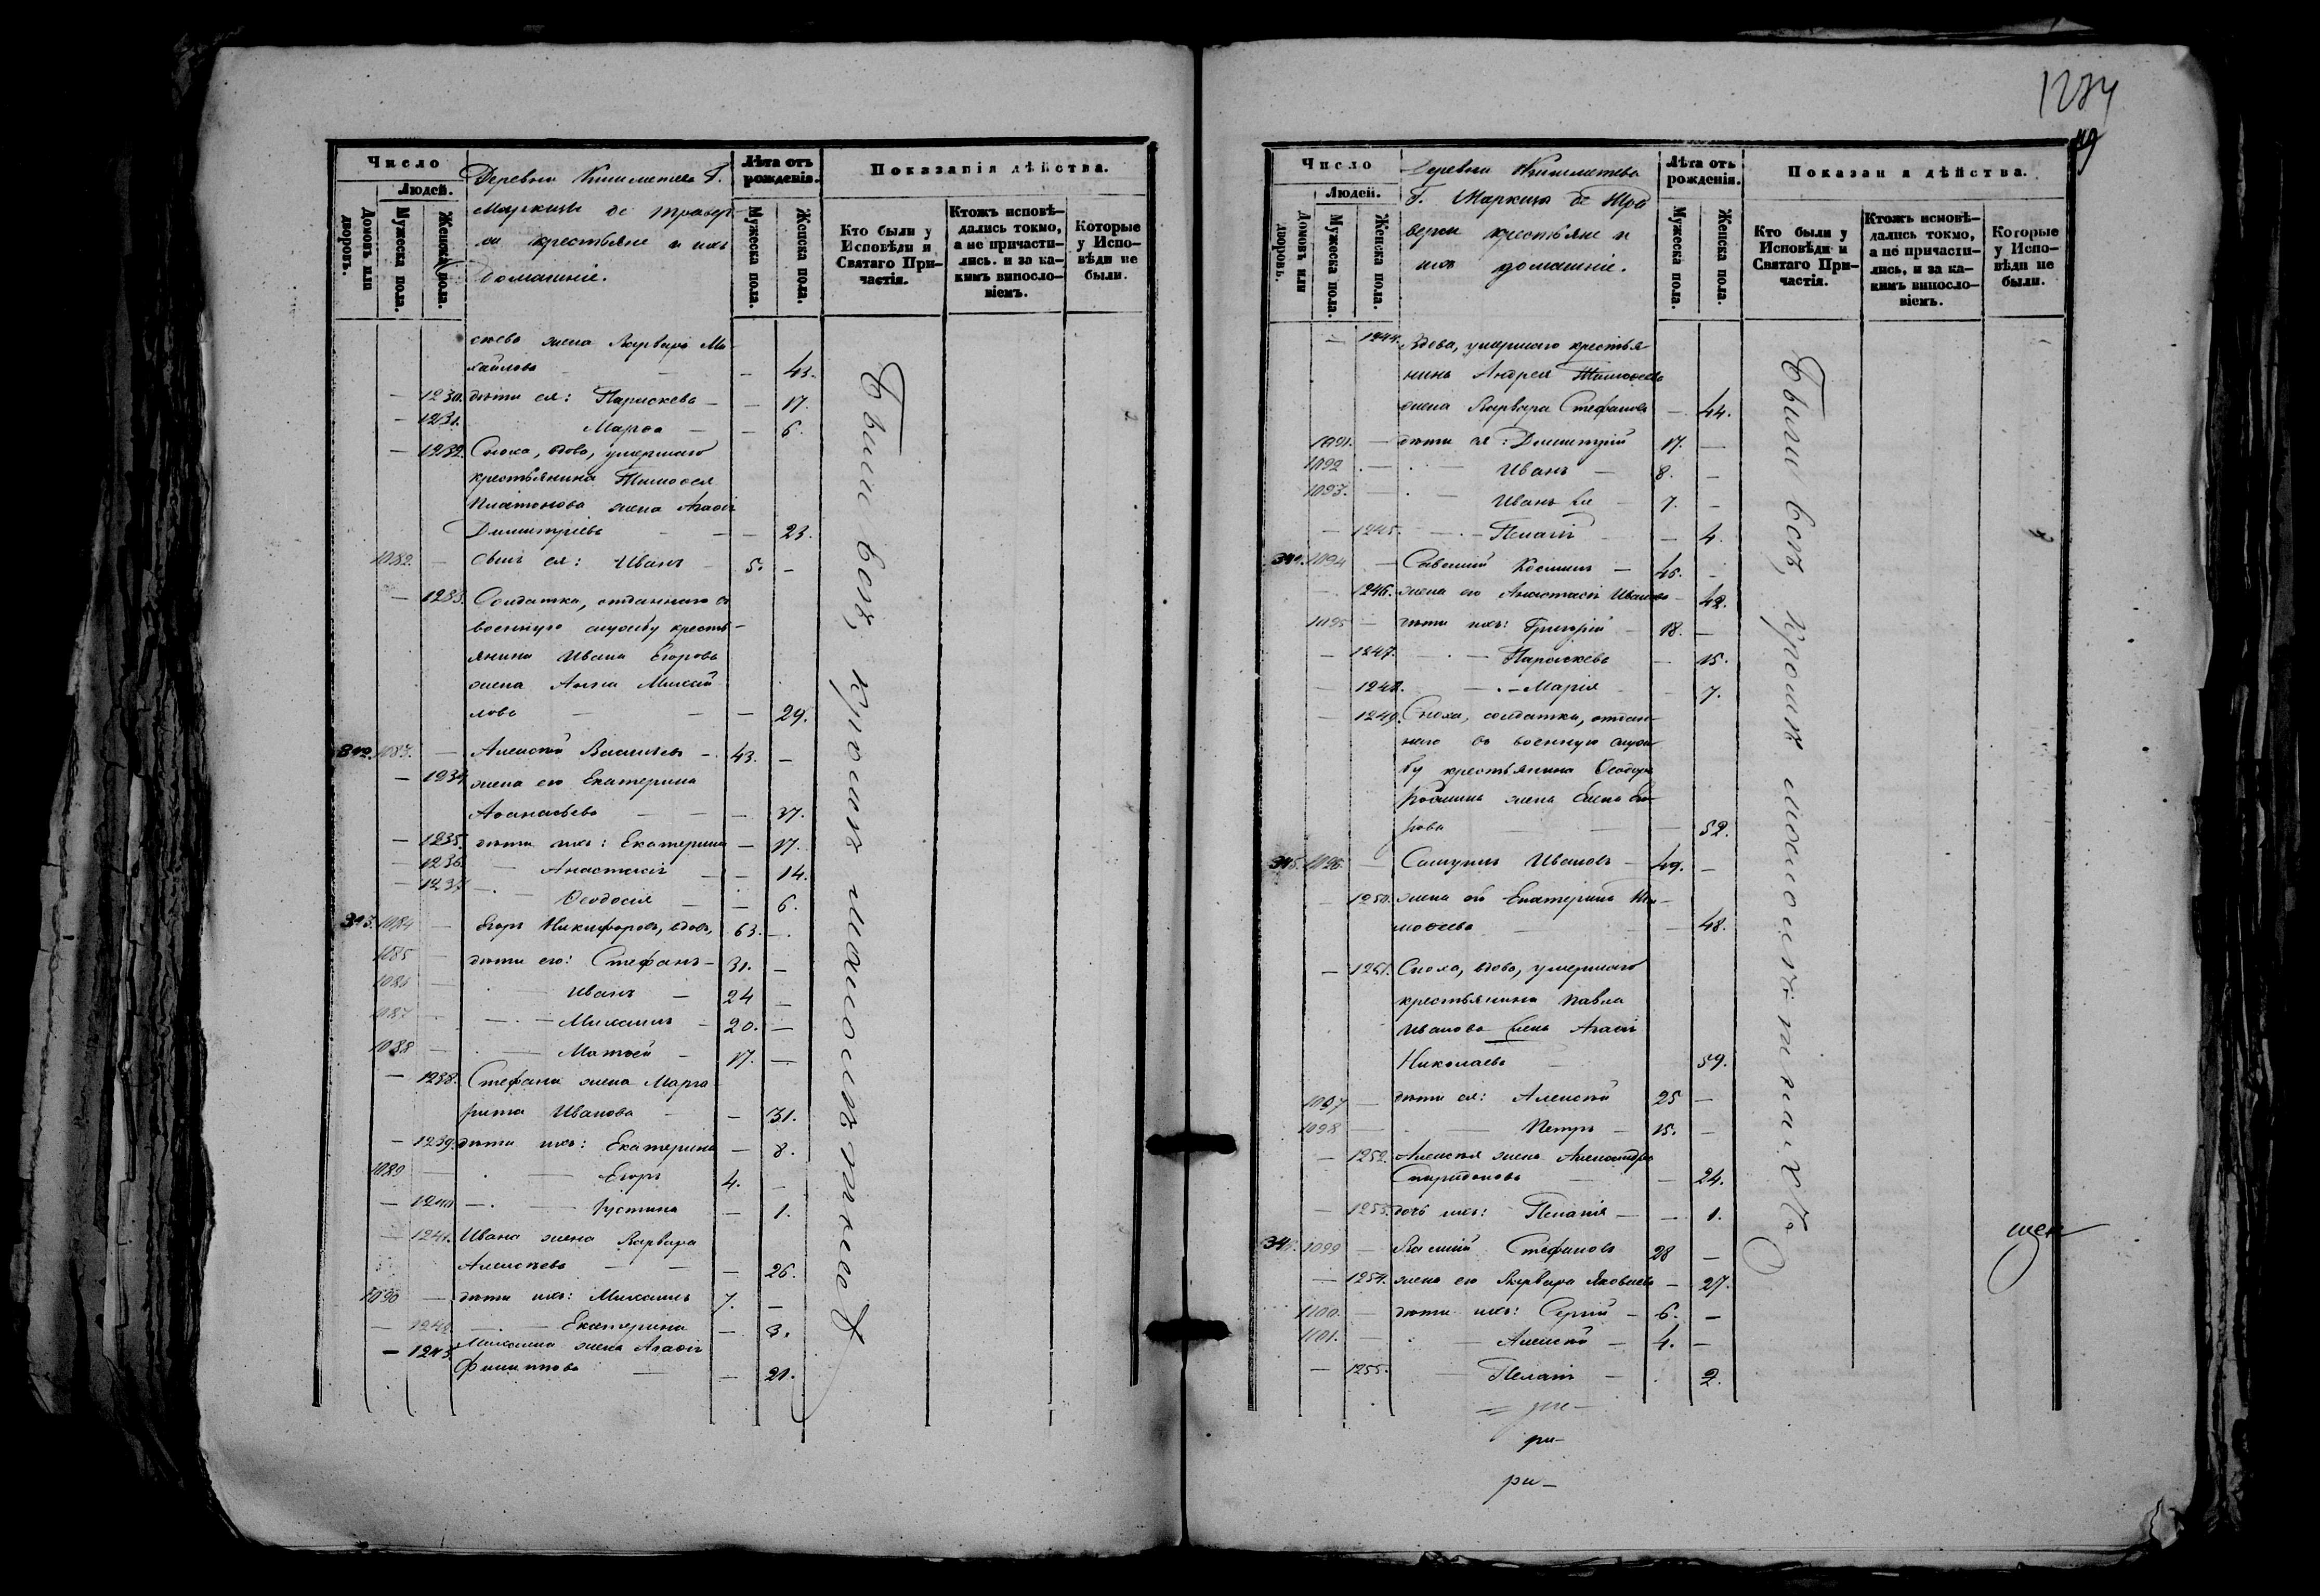 Число
Людей.
Домовъ или дворовъ.
Мужеска пола.
Женска пола.
Деревни Кишметева Г.
Маркиза де Траверси
крестьяне и ихъ
домашніе.
Лѣта отъ рожденія.
Мужеска пола.
Женска пола.
Показанія дѣйства.
Кто были у Исповѣди и Святаго Причастія.
Ктожъ исповѣдались токмо, а не причастились. и за какимъ винословіемъ.
Которые у Исповѣди не были.
жена Варвара Ми-
хайлова — — — 43.
— 1230. дѣти ея: Параскева — — 17.
— 1231. Марѳа — — 6.
— 1232. Сноха, вдова, умершаго
крестьянина Тимоѳея
Платонова жена Агаѳія
Димитріева — — — 23.
1082. — Сынъ ея: Иванъ — 5. —
— 1233. Солдатка, отданнаго въ
военную службу кресть-
янина Ивана Егорова
жена Анна Михай-
лова — — — 29.
312. 1083. — Алексѣй Васильевъ — 43. —
— 1234. жена его Екатерина
Аѳанасьева — — — 37.
— 1235. дѣти ихъ: Екатерина — 17.
— 1236. — Анастасія — — 14.
— 1237. — Ѳеодосія — — 6.
313. 1084 — Егоръ Никифоровъ, вдовъ, 63. —
1085 — дѣти его: Стефанъ — 31. —
1086 — Иванъ — 24 —
1087 — Михаилъ — 20. —
1088 — Матвей — 17. —
— 1238. Стефана жена Марга-
рита Иванова — — 31.
— 1239. дѣти ихъ: Екатерина — 8.
1089 — Егоръ 4. —
— 1240 — Іустина — 1.
— 1241. Ивана жена Варвара
Алексѣева — — — 26.
1090 — дѣти ихъ: Михаилъ 7. —
— 1242 — Екатерина — 3.
— 1243. Михаила жена Агаѳія
Филиппова — — 21.
Были всѣ, кромѣ малолѣтнихъ
1234
Число
Людей.
Домовъ или дворовъ.
Мужеска пола.
Женска пола.
Деревни Кишметева
Г. Маркиза де Тра-
верси крестьяне и
ихъ домашніе.
Лѣта отъ рожденія.
Мужеска пола.
Женска пола.
Показанія дѣйства.
Кто были у Исповѣди и Святаго Причастія.
Ктожъ исповѣдались токмо, а не причастились, и за какимъ винословіемъ.
Которые у Исповѣди не были.
— 1244. Вдова, умершаго крестья-
нина Андрея Тимоѳеева
жена Варвара Стефанова — 44.
1091. — дѣти ея: Димитрій 17. —
1092. — Иванъ — 8. —
1093. — Иванъ — 7. —
— 1245. — Пелагія — 4.
314. 1094 — Савелій Косминъ — 45. —
— 1246. жена его Анастасія Иванова — 42.
1095 — дѣти ихъ: Григорій — 18. —
— 1247. — Параскева — 15.
— 1248. — Марія — 7.
— 1249. Сноха, солдатка, отдан-
наго въ военную служ-
бу крестьянина Ѳеодора
жена Елена
— — 52.
315. 1096. — Самуилъ Ивановъ — 49. —
— 1250. жена его Екатерина Ти-
моѳеева — — 48.
— 1251. Сноха, вдова, умершаго
крестьянина Павла
Иванова жена Агаѳія
Николаева — 59.
1097 — дѣти ея: Алексѣй 25 —
1098 — Петръ — 15. —
— 1252. Алексѣя жена Александра
Спиридонова — — 24.
— 1253. дочь ихъ: Пелагія — — 1.
316. 1099 — Василій Стефановъ 28 —
— 1254. жена его Варвара Яковлева — 27.
1100. — дѣти ихъ: Сергій — 6. —
1101. — Алексѣй — 4. —
— 1255. — Пелагія — 2.
ри—
ри—
Были всѣ, кромѣ малолѣтнихъ